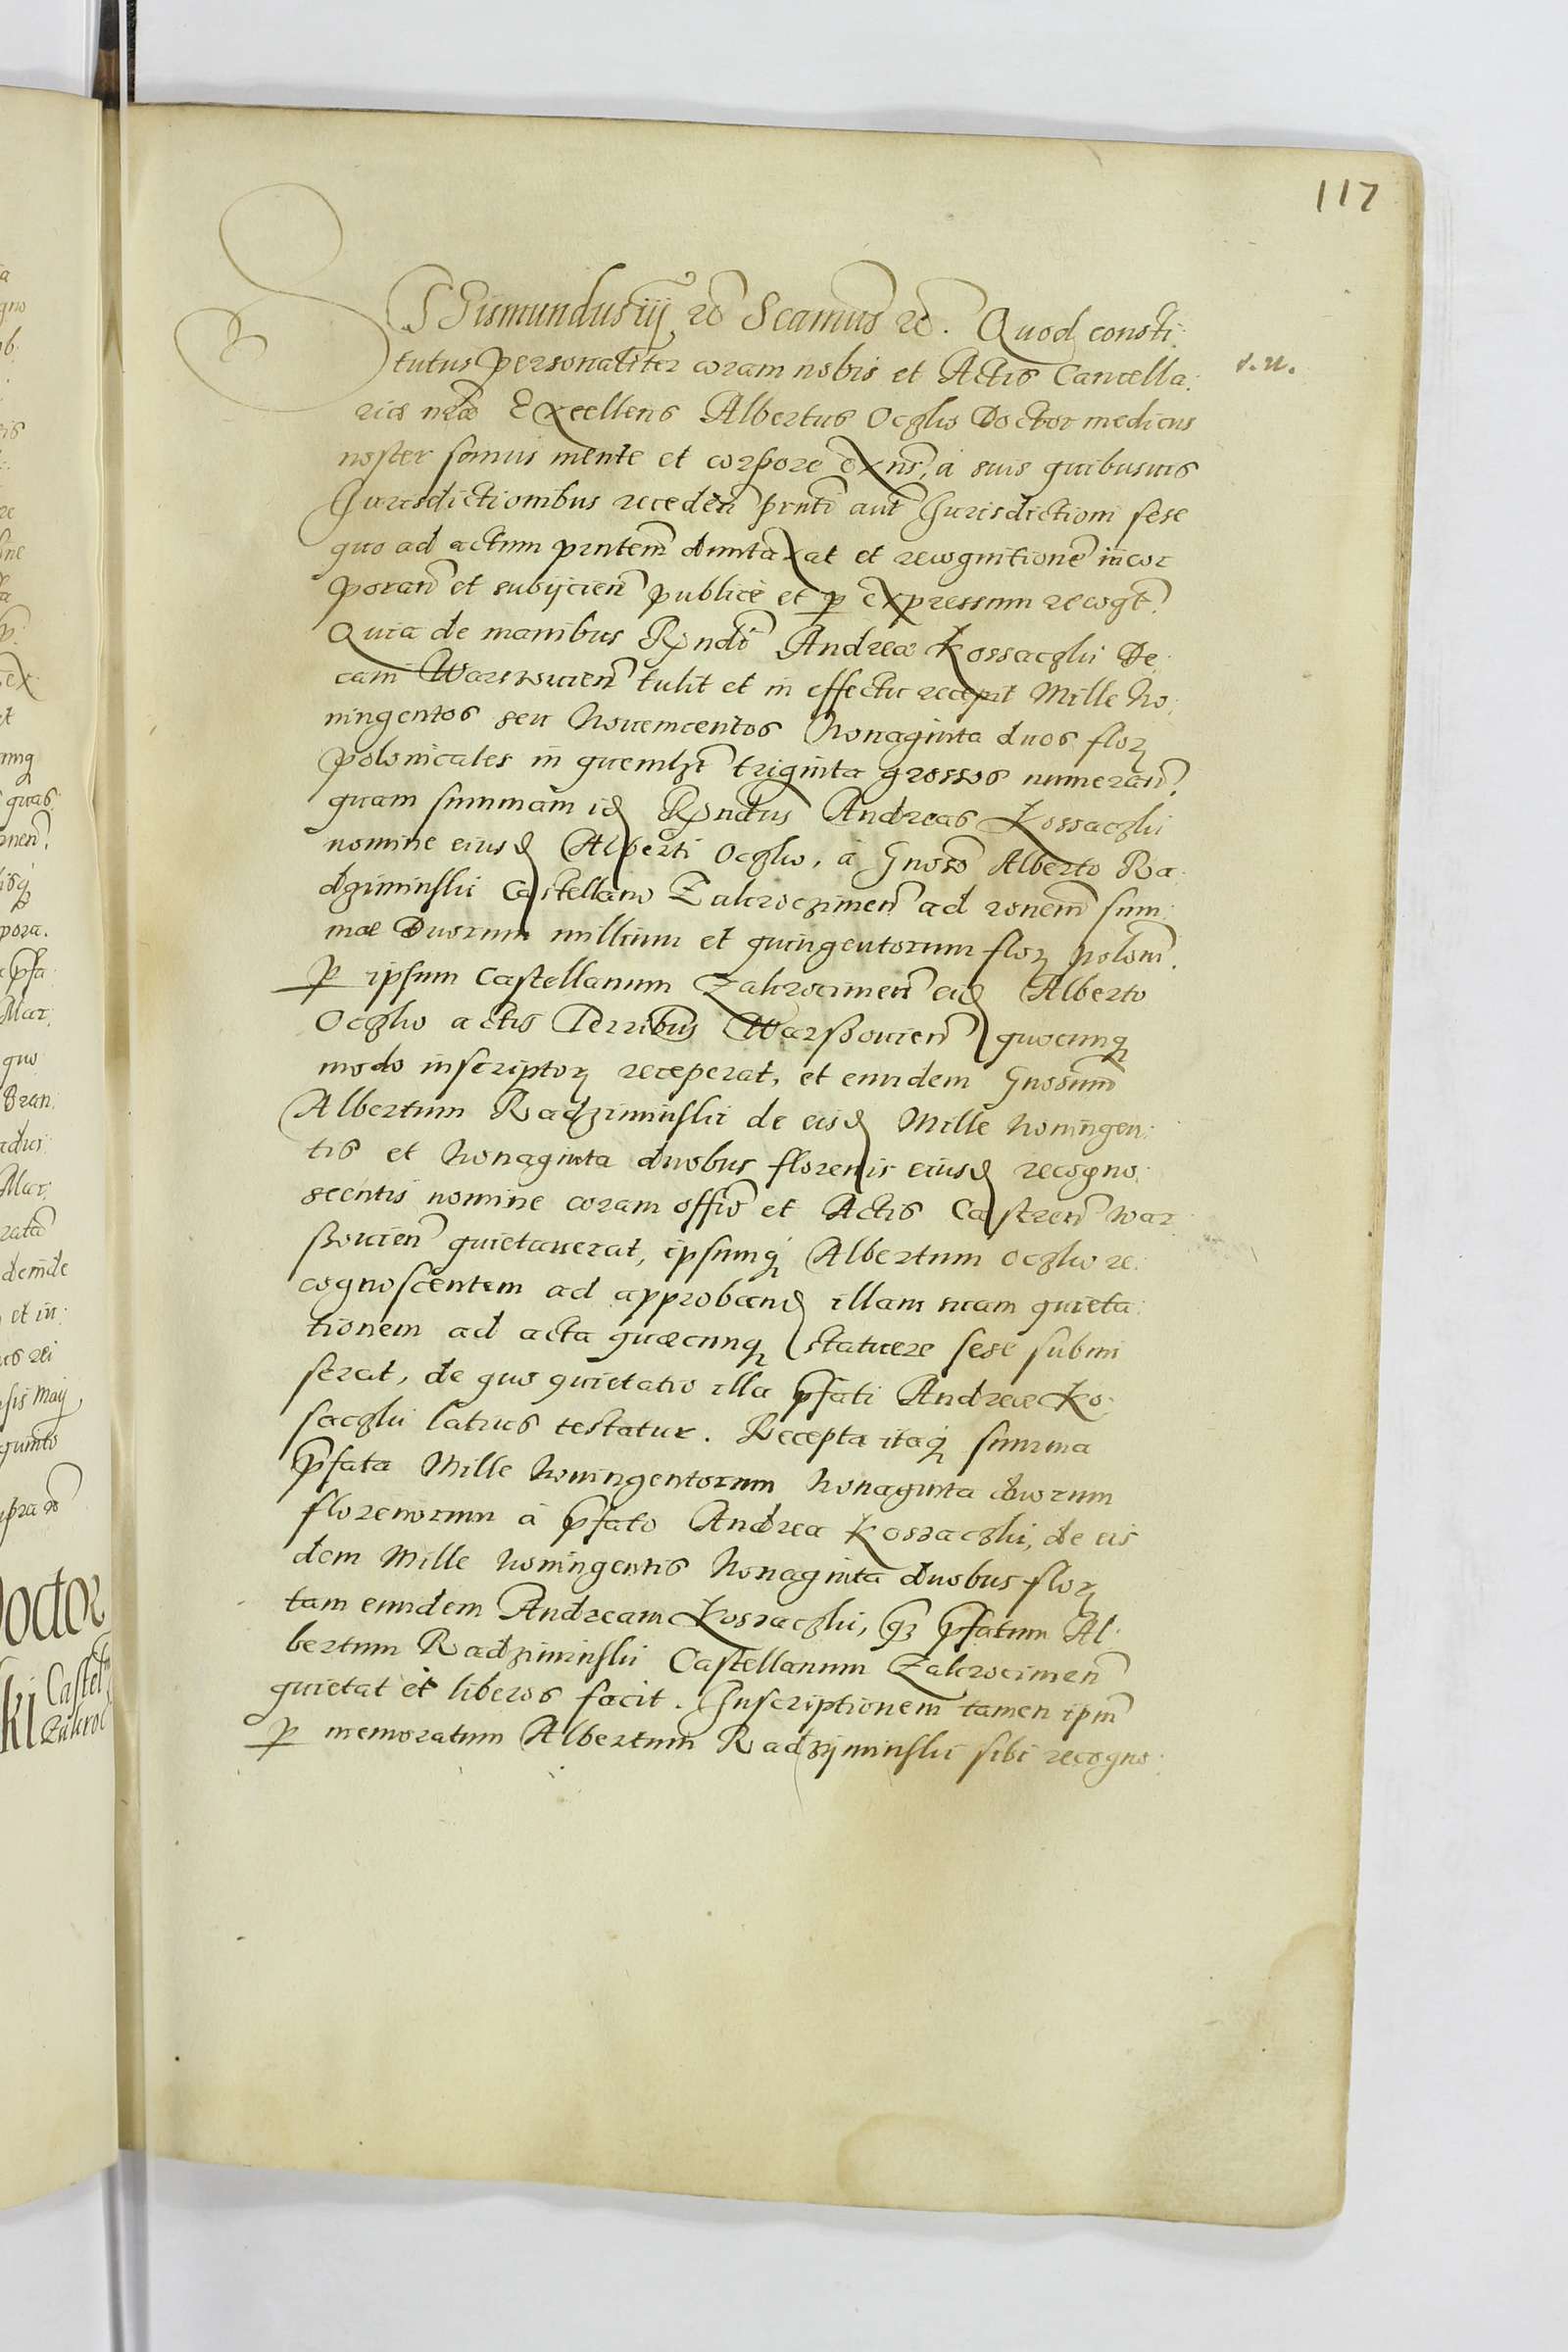 117
SGismundus iij, &c Scamus &c. Quod consti:
tutus personaliter coram nobis et Actis Cancella:
riæ nræ Excellens Albertus Oczko Doctor medicus
noster sanus mente et corpore exns, à suis quibusuis
Jurisdictionibus recedeñ prnti aut Jurisdictioni sese
quo ad actum prntem duntaxat et recognitionẽ incor
porañ et subijcieñ publicè et p expressum recogt.
Quia de manibus Rndi Andreæ Kossaczki De:
cani Warssouieñ tulit et in effectu recepit Mille No:
ningentos seu Nouemcentos Nonaginta duos flor
polonicales in quemlzt triginta grossos numerañ.
quam summam id Rndus Andreas Kossaczki
nomine eiusd Alberti Oczko, à Gnoso Alberto Ra:
dziminski Castellano Zakroczimeñ ad ronem sum:
mæ Duorum millium et quingentorum flor poloni.
p ipsum Castellanum Zakrocimeñ eid Alberto
Oczko actis Terribus Warßouieñ quocunq
modo inscriptor receperat, et eundem Gnosum
Albertum Radziminski de eisd Mille Noningen:
tis et Nonaginta duobus florenis eiusd recogno:
scentis nomine coram offio et Actis Castreñ War
ßouieñ quietauerat, ipsumq Albertum Oczko re:
cognoscentem ad approband illam suam quieta:
tionem ad acta quæcunq statuere sese submi
serat, de quo quietatio illa pfati Andreæ Ko:
saczki latius testatur. Recepta itaq summa
pfata Mille Noningentorum Nonaginta duorum
florenorum à pfato Andrea Kossaczki, de eis
dem Mille Noningentis Nonaginta duobus flor
tam eundem Andream Kossaczki, qz pfatum Al:
bertum Radziminski Castellanum Zakrocimeñ
quietat et liberos facit. Inscriptionem tamen ipm
p memoratum Albertum Radzijminski sibi recogno: